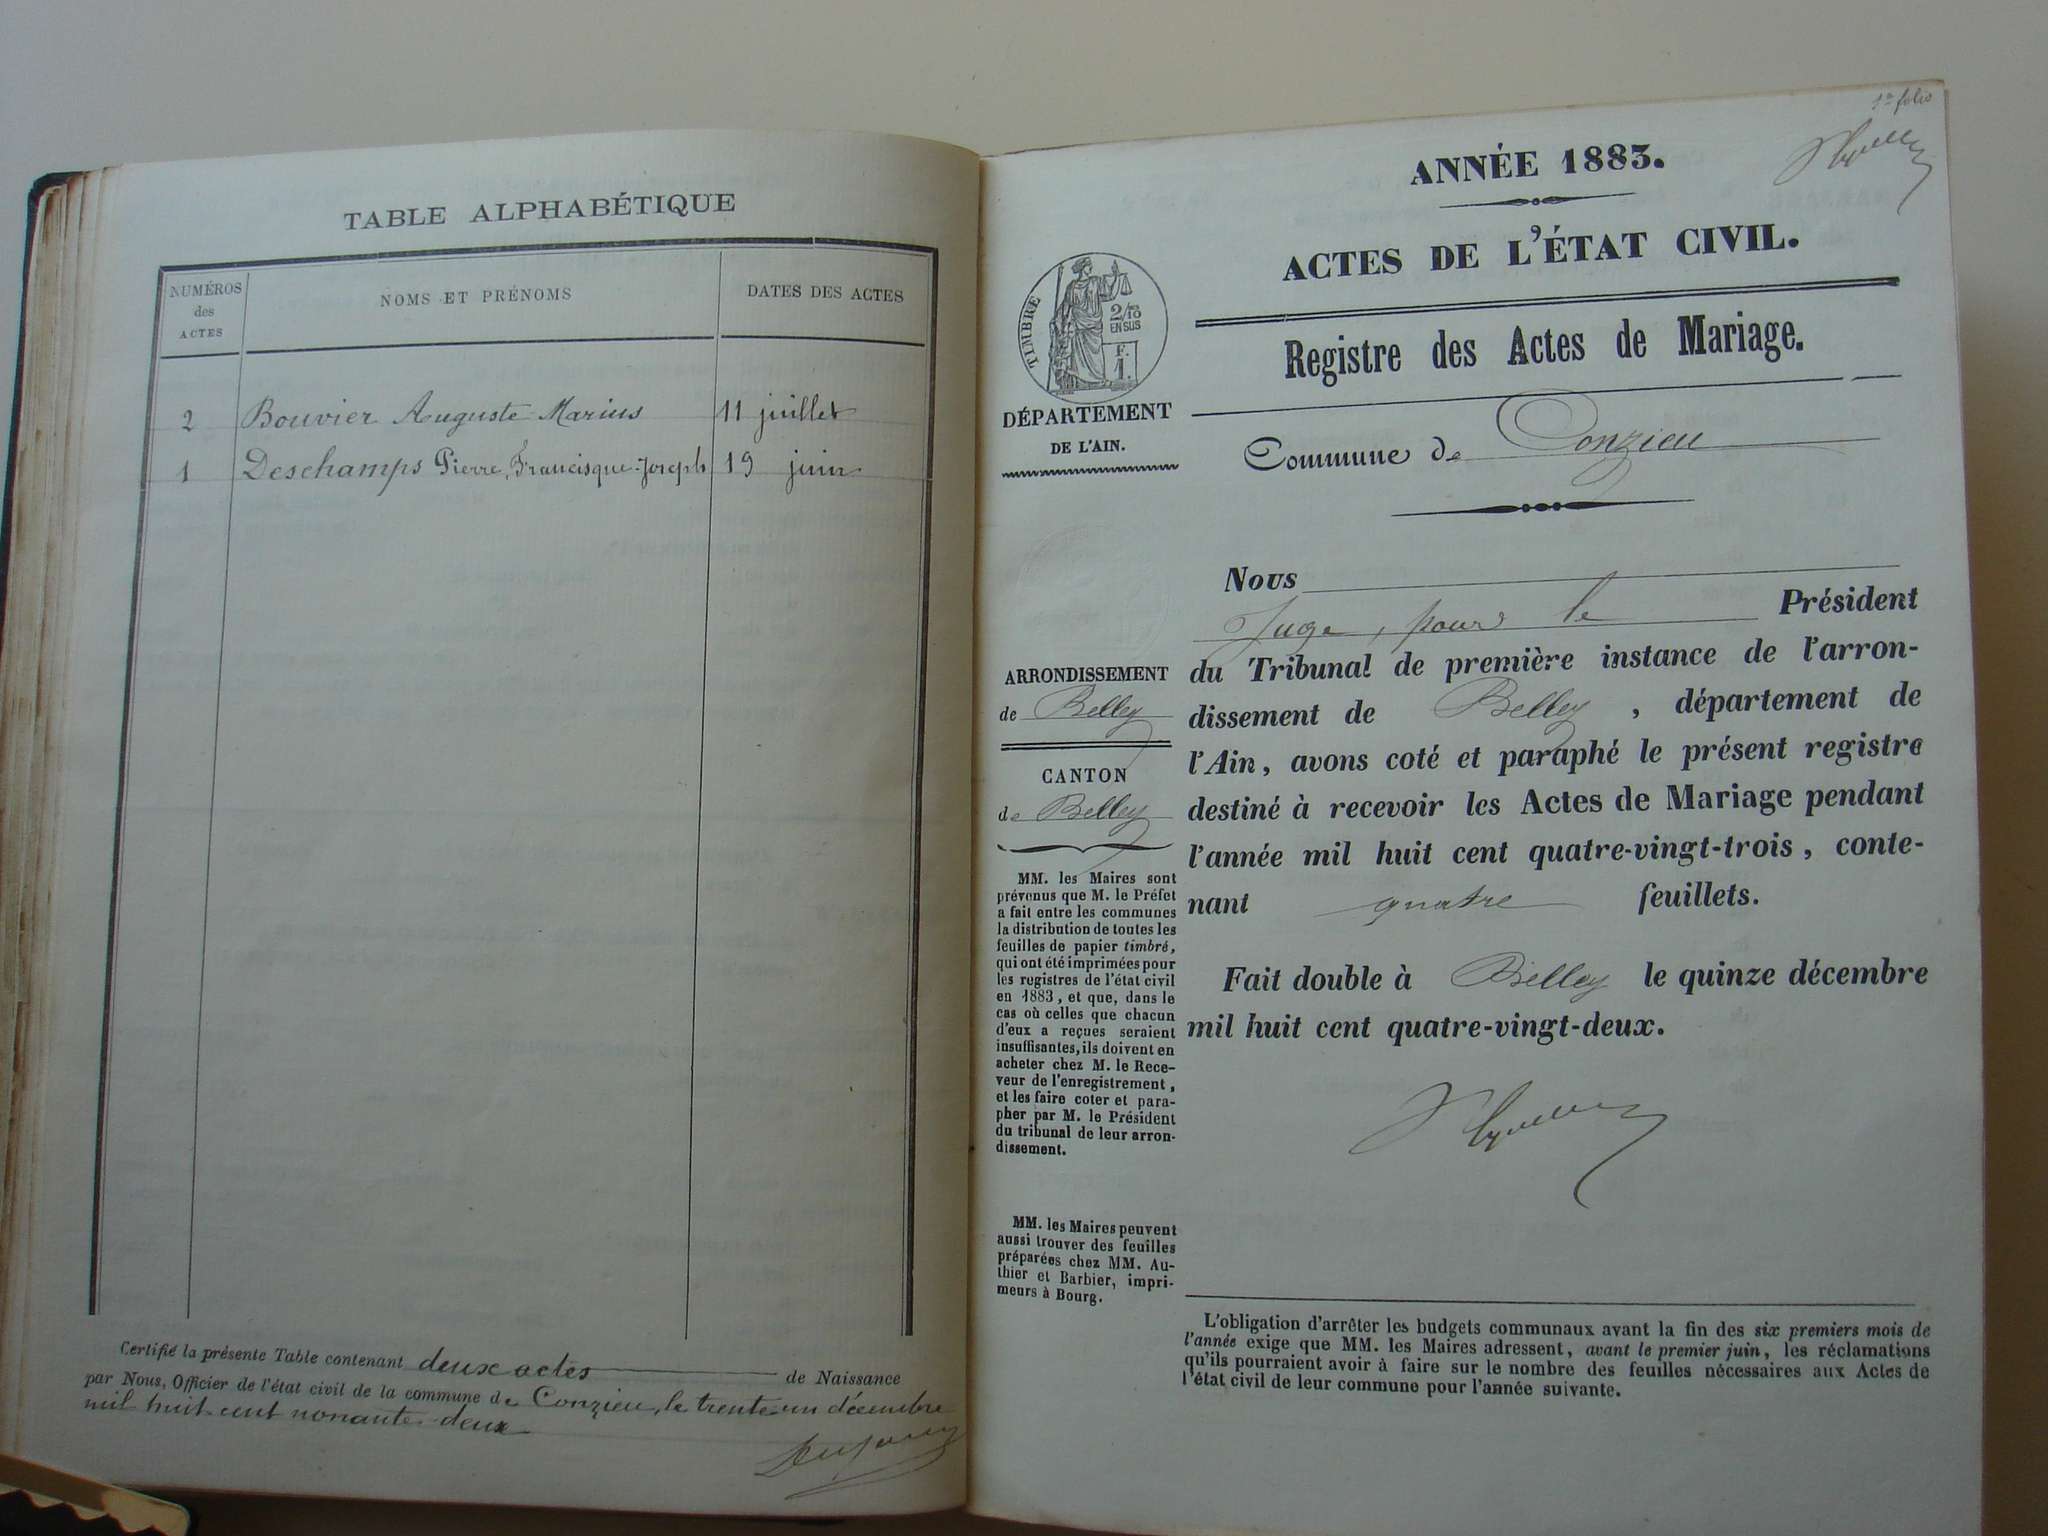 TABLE ALPHABÉTIQUE
NUMÉROS
des
ACTES
NOMS ET PRÉNOMS
DATES DES ACTES
2 Bouvier Auguste Marius 11 juillet
1 Deschamps Pierre, Francisque-Joseph 19 juin
Certifié la présente Table contenant deux actes de Naissance
par Nous, Officier de l'état civil de la commune de Conzieu, le trente un décembre
mil huit cent nonante deux
1er folio
ANNÉE 1883.
ACTES DE L'ÉTAT CIVIL.
TIMBRE
2/10
EN SUS
F.
1.
Registre des Actes de Mariage.
DÉPARTEMENT
DE L'AIN.
Commune de Conzieu
Nous
Juge, pour le Président
du Tribunal de première instance de l'arron-
dissement de Belley, département de
l'Ain, avons coté et paraphé le présent registre
destiné à recevoir les Actes de Mariage pendant
l'année mil huit cent quatre-vingt-trois, conte-
nant quatre feuillets.
Fait double à Belley le quinze décembre
mil huit cent quatre-vingt-deux.
ARRONDISSEMENT
de Belley
CANTON
de Belley
MM. les Maires sont
prévenus que M. le Préfet
a fait entre les communes
la distribution de toutes les
feuilles de papier timbré,
qui ont été imprimées pour
les registres de l'état civil
en 1883, et que, dans le
cas où celles que chacun
d'eux a reçues seraient
insuffisantes, ils doivent en
acheter chez M. le Rece-
veur de l'enregistrement,
et les faire coter et para-
pher par M. le Président
du tribunal de leur arron-
dissement.
MM. les Maires peuvent
aussi trouver des feuilles
préparées chez MM. Au-
thier et Barbier, impri-
meurs à Bourg.
L'obligation d'arrêter les budgets communaux avant la fin des six premiers mois de
l'année exige que MM. les Maires adressent, avant le premier juin, les réclamations
qu'ils pourraient avoir à faire sur le nombre des feuilles nécessaires aux Actes de
l'état civil de leur commune pour l'année suivante.